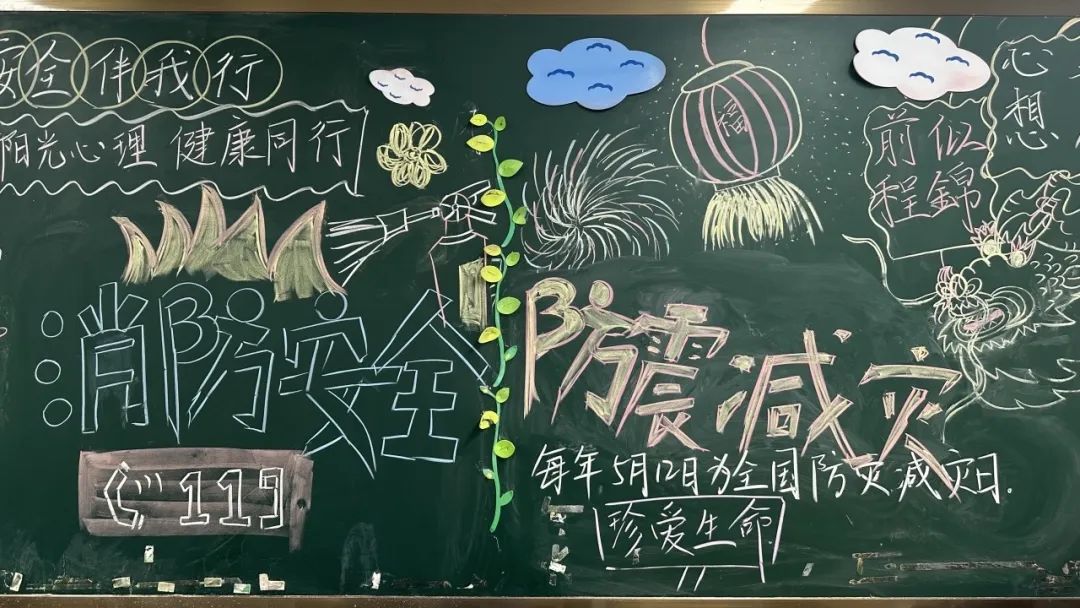 安全伴我行
阳光心理 健康同行
消防安全
119
福
防震减灾
每年5月12日为全国防灾减灾日.
珍爱生命
前似
程錦
心
想